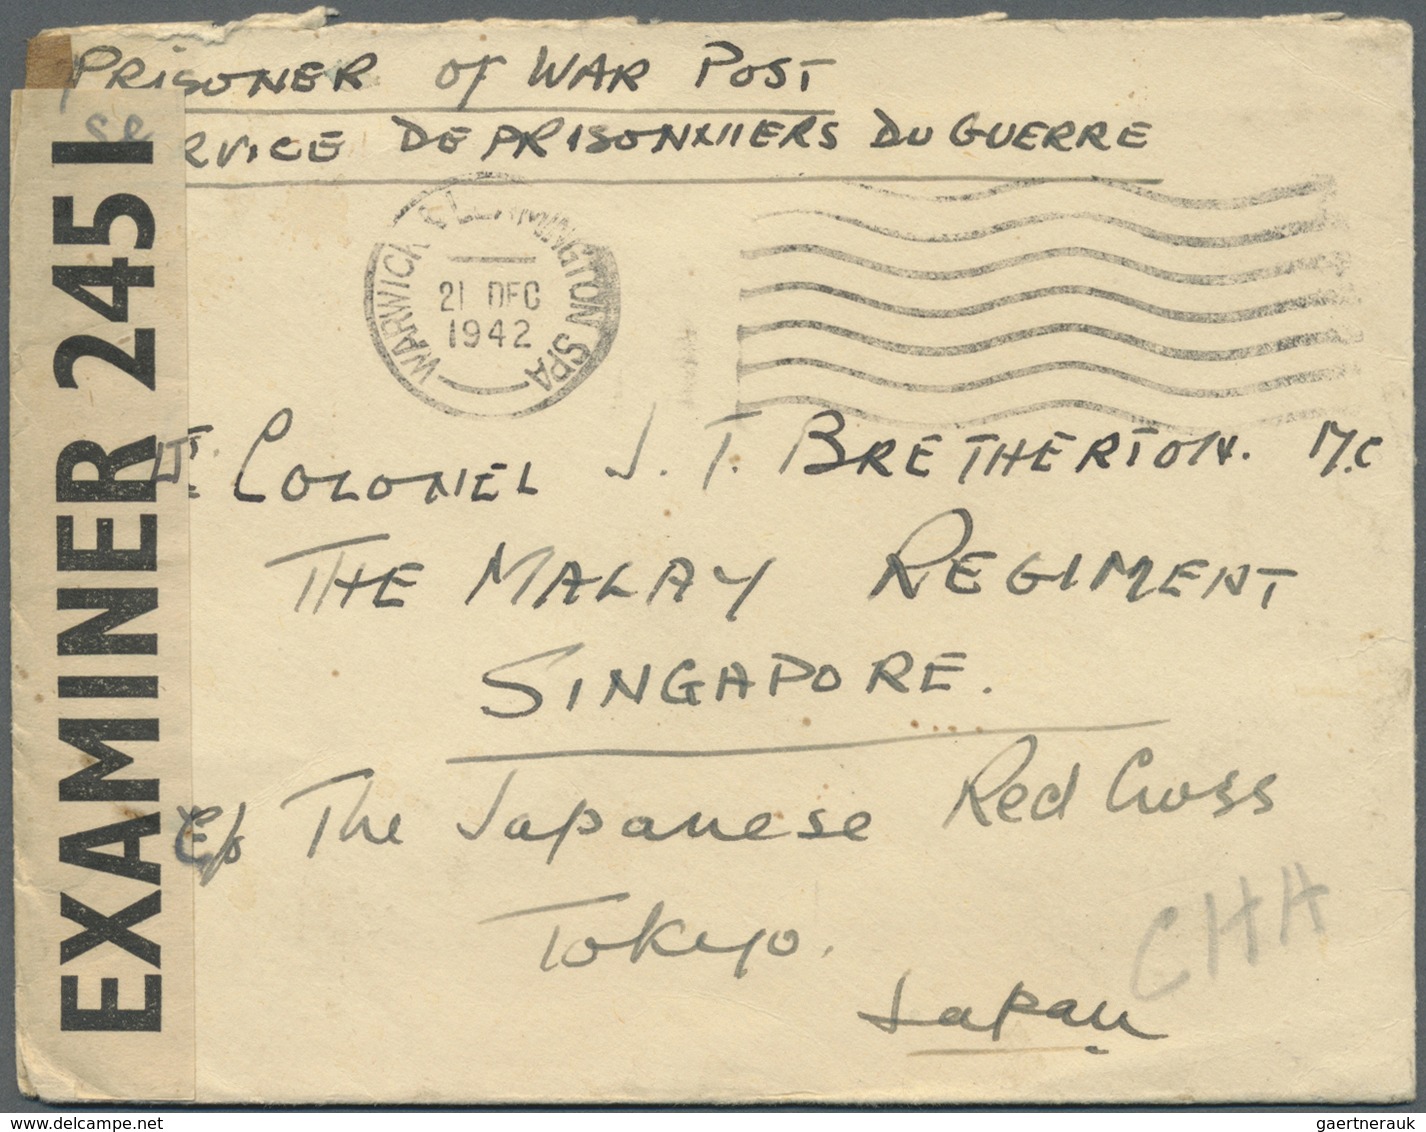 PRISONER OF WAR POST
SERVICE DE PRISONNIIERS DU GUERRE
WARWICK & LEAMINGTON SPA
21 DEC
1942
LT. COLONEL J. T. BRETHERTON. M.C
THE MALAY REGIMENT
SINGAPORE.
c/o The Japanese Red Cross
Tokyo.
Japan
CHA
EXAMINER 2451
gaertnerauk